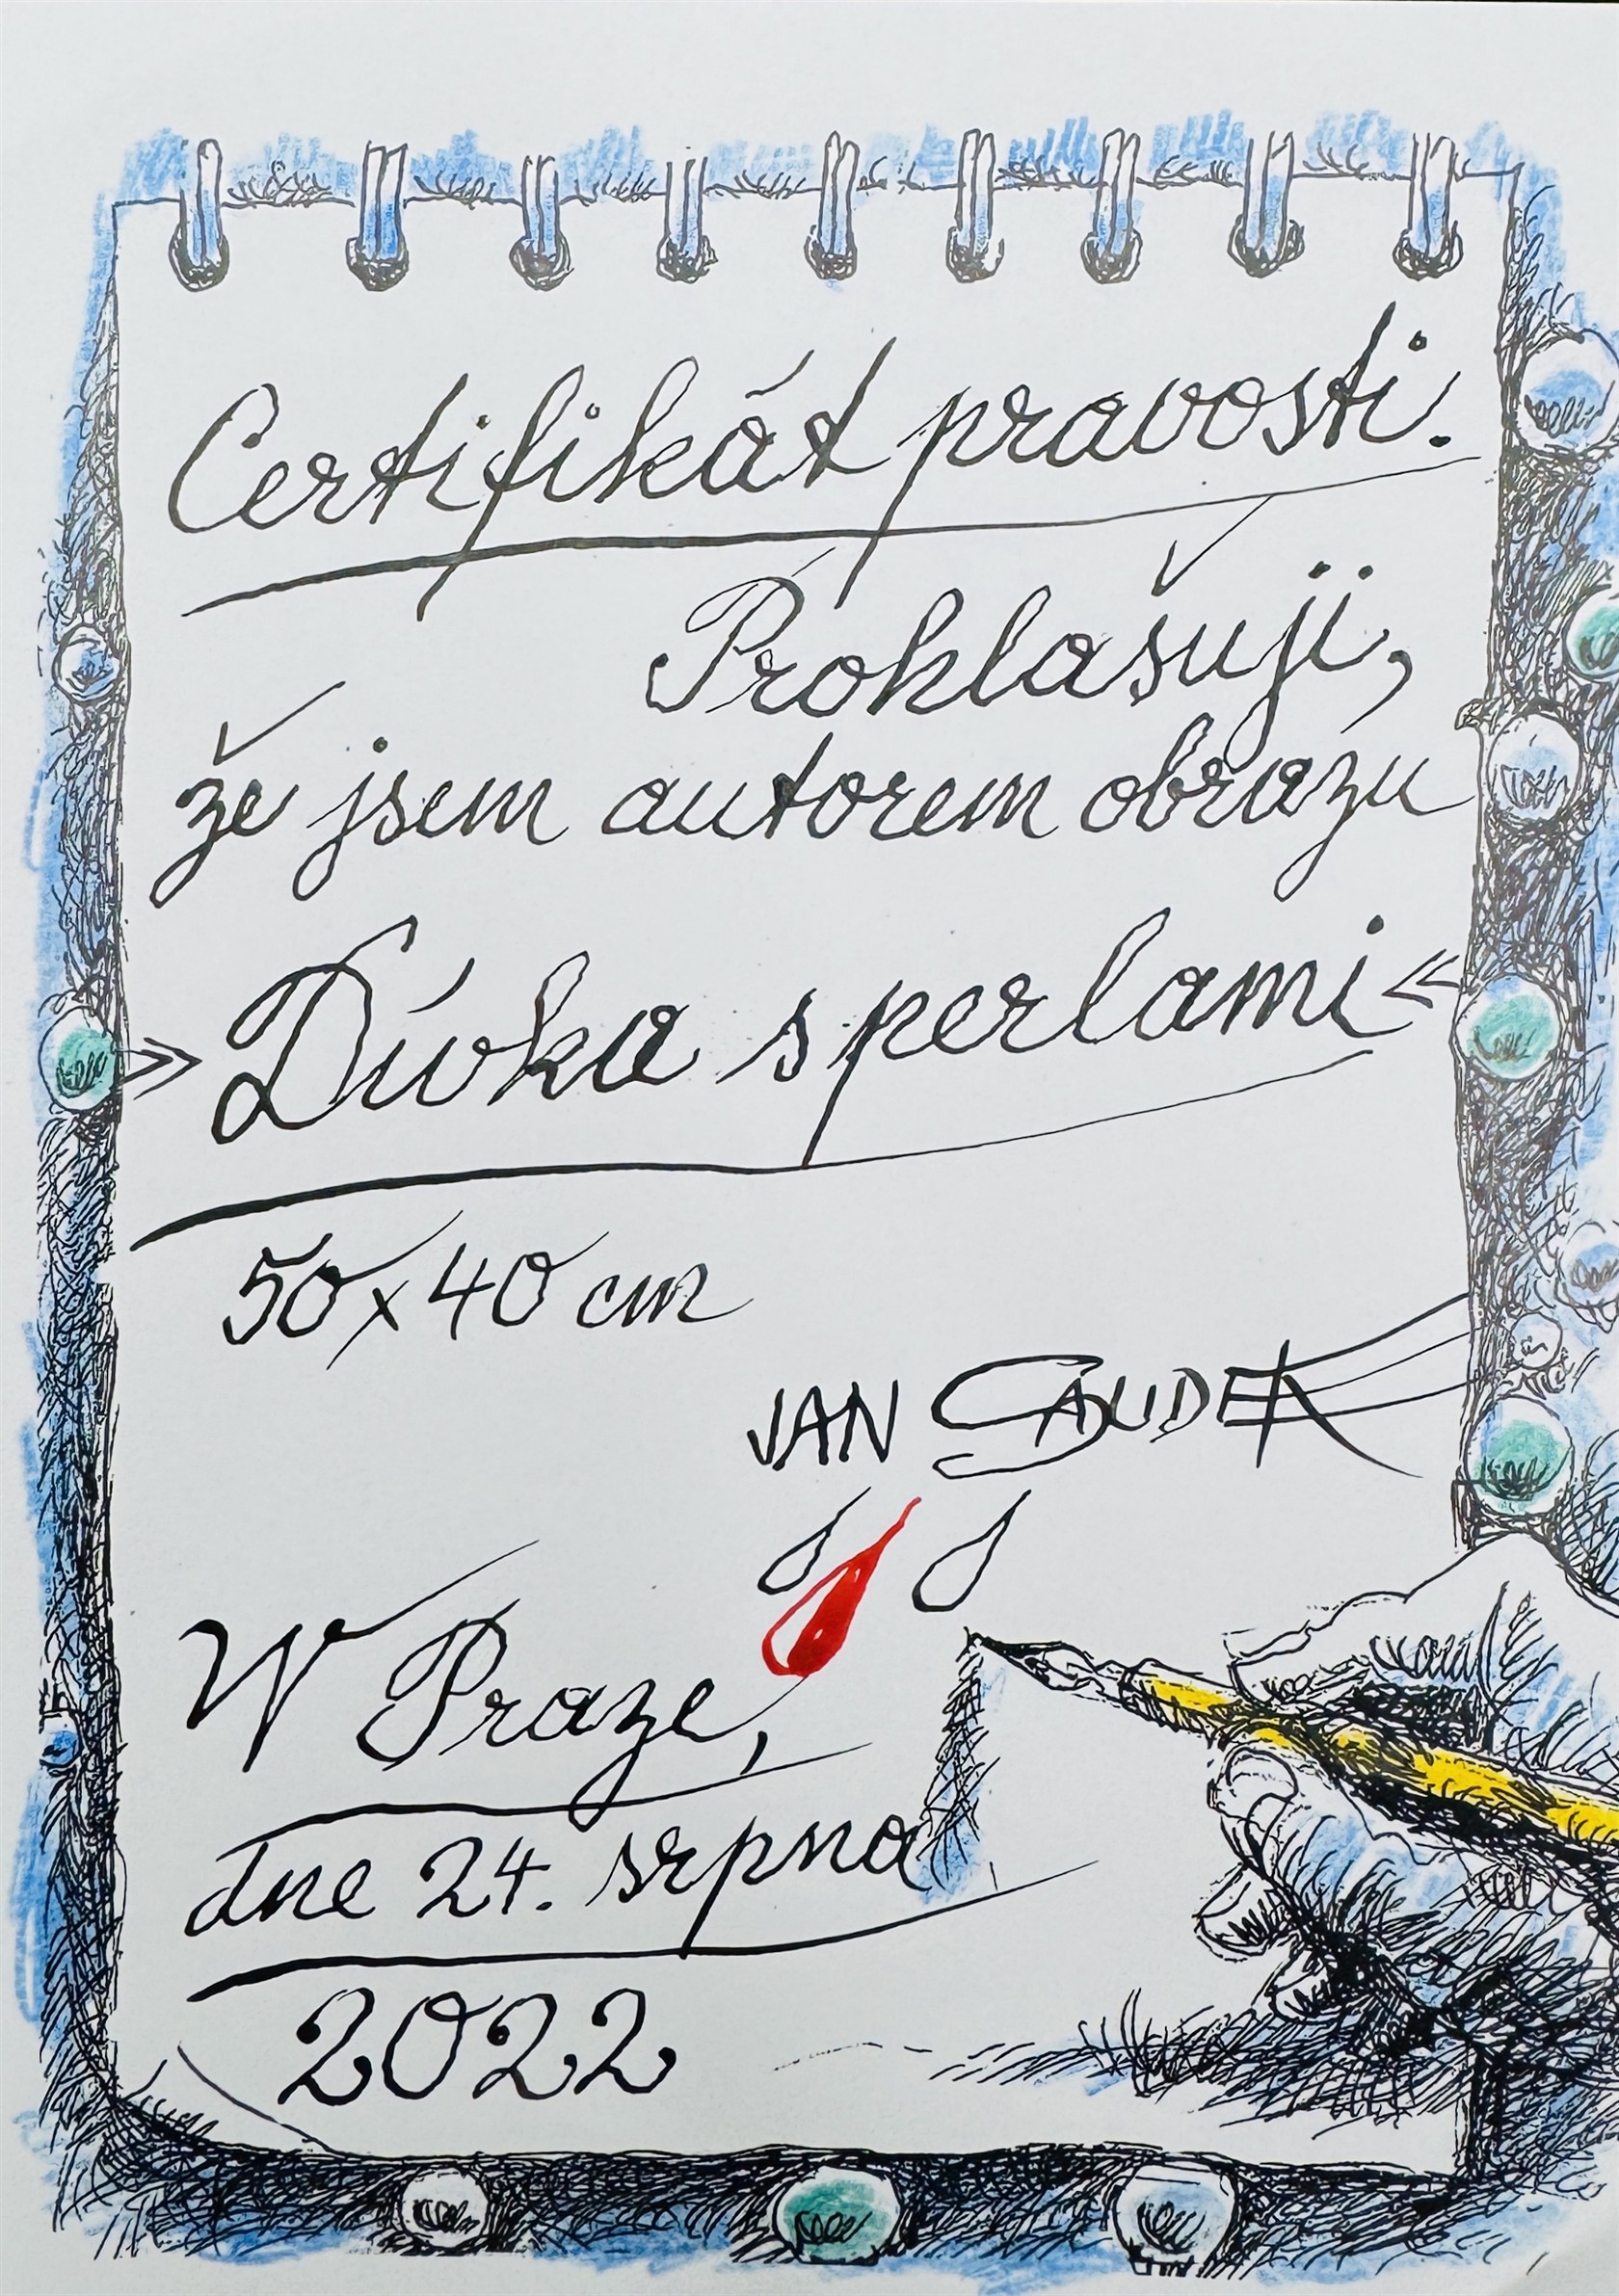 Certifikát pravosti.
Prohlašuji,
že jsem autorem obrazu
»Dívka s perlami«
50x40 cm
JAN SAUDEK
W Praze,
dne 24. srpna
2022